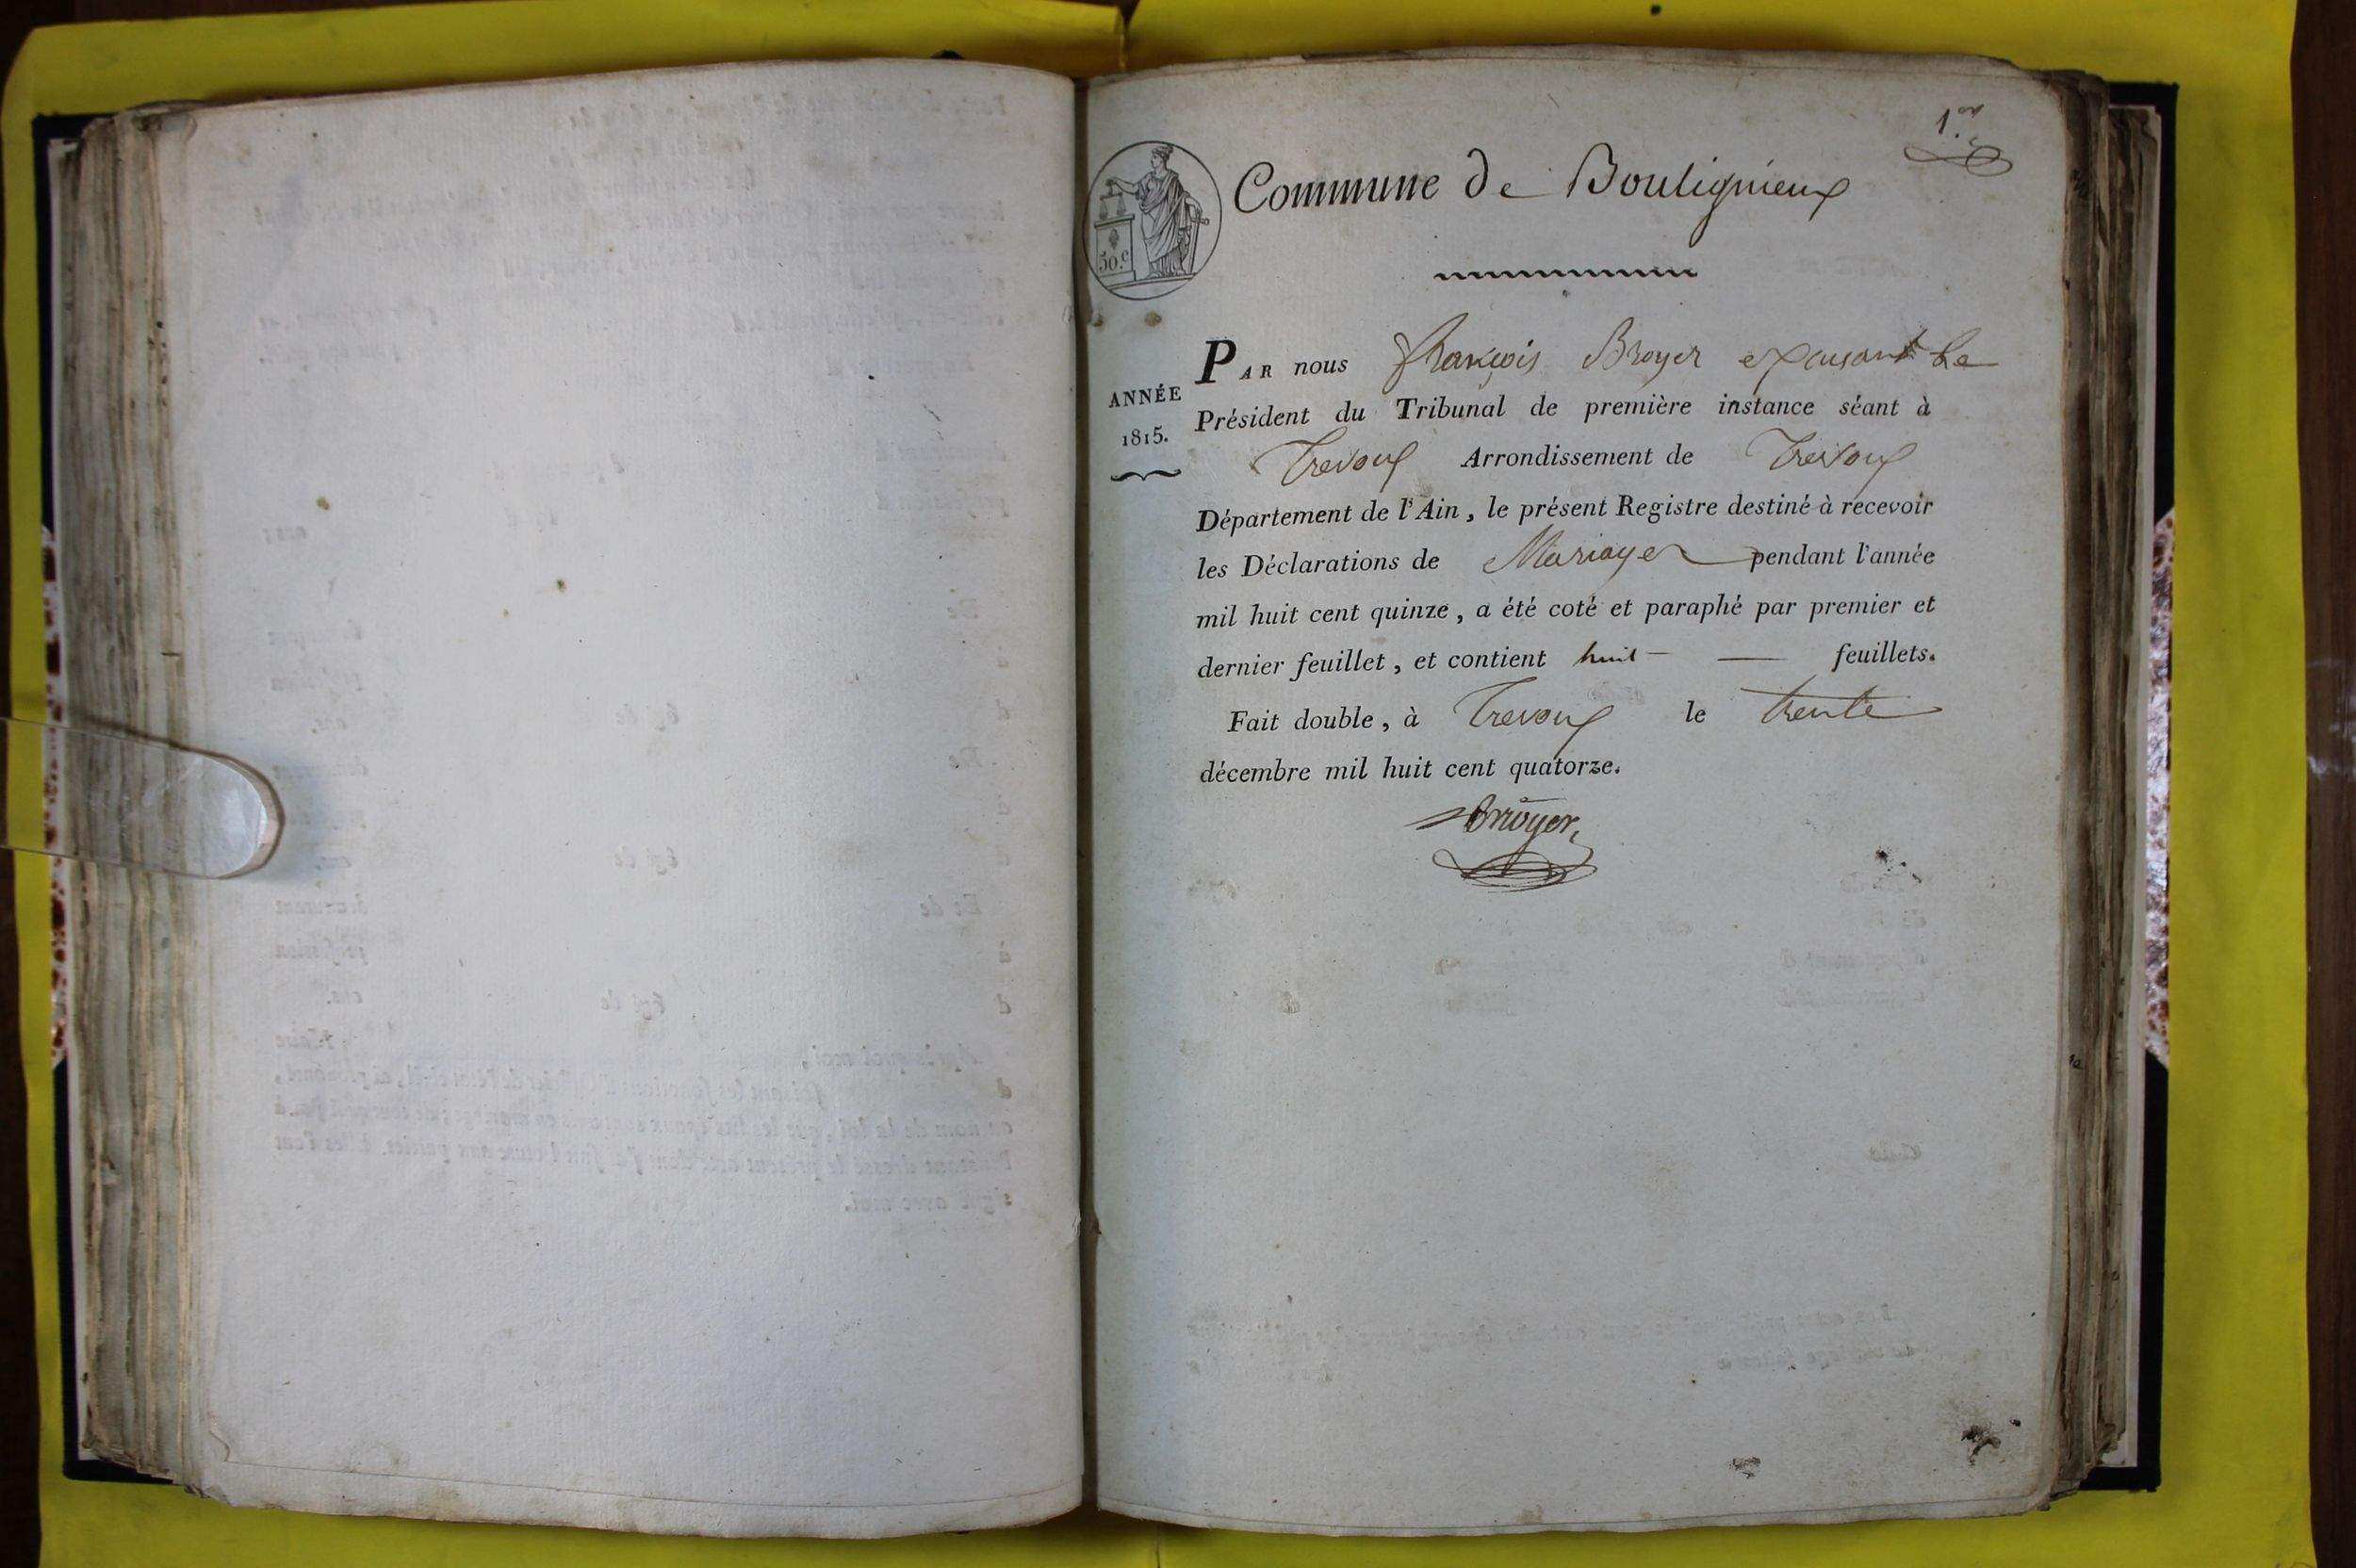 1er
Commune de Bouligneux
50.c
PAR nous François Broyer exerçant le
ANNÉE
1815.
Président du Tribunal de première instance séant à
Trevoux Arrondissement de Trevoux
Département de l'Ain, le présent Registre destiné à recevoir
les Déclarations de Mariages pendant l'année
mil huit cent quinze, a été coté et paraphé par premier et
dernier feuillet, et contient huit — — feuillets.
Fait double, à Trevoux le trente
décembre mil huit cent quatorze.
Broyer